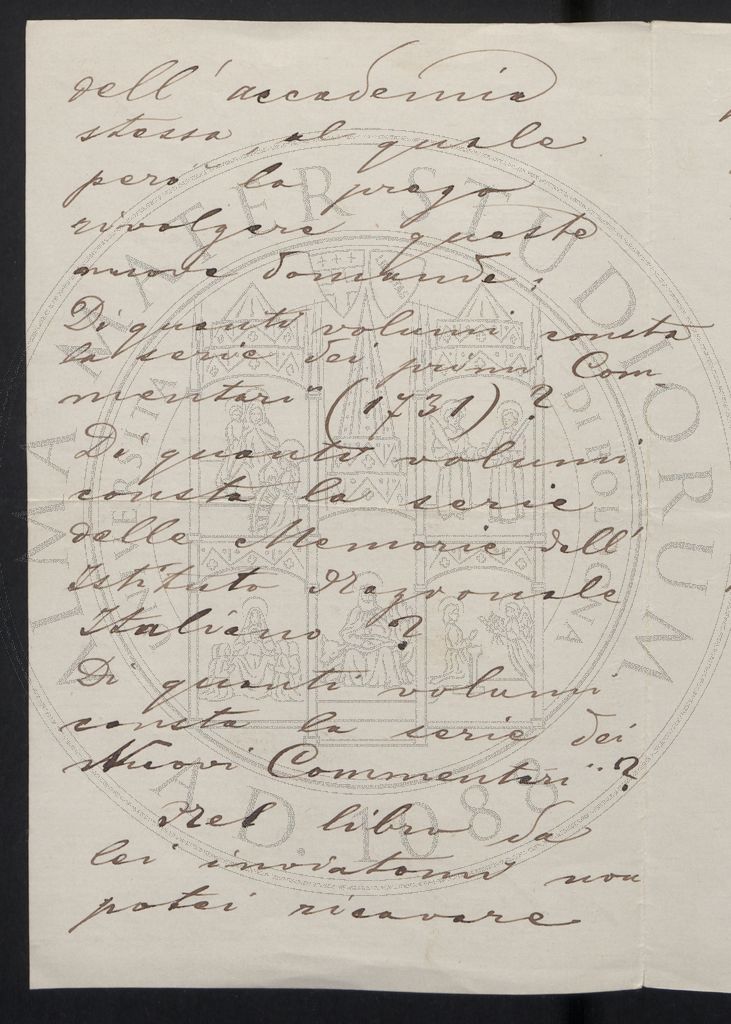 dell'accademia
stessa, al quale
però la prego
rivolgere queste
nuove domande:
Di quanti volumi consta
la serie dei primi Com-
mentarii (1731)?
Di quanti volumi
consta la serie
delle Memorie dell'
Istituto Nazionale
Italiano?
Di quanti volumi
consta la serie dei
Nuovi Commentarii?
Nel libro da
lei inviatomi non
potei ricavare
ALMA MATER STUDIORUM
A.D. 1088
UNIVERSITÀ DI BOLOGNA